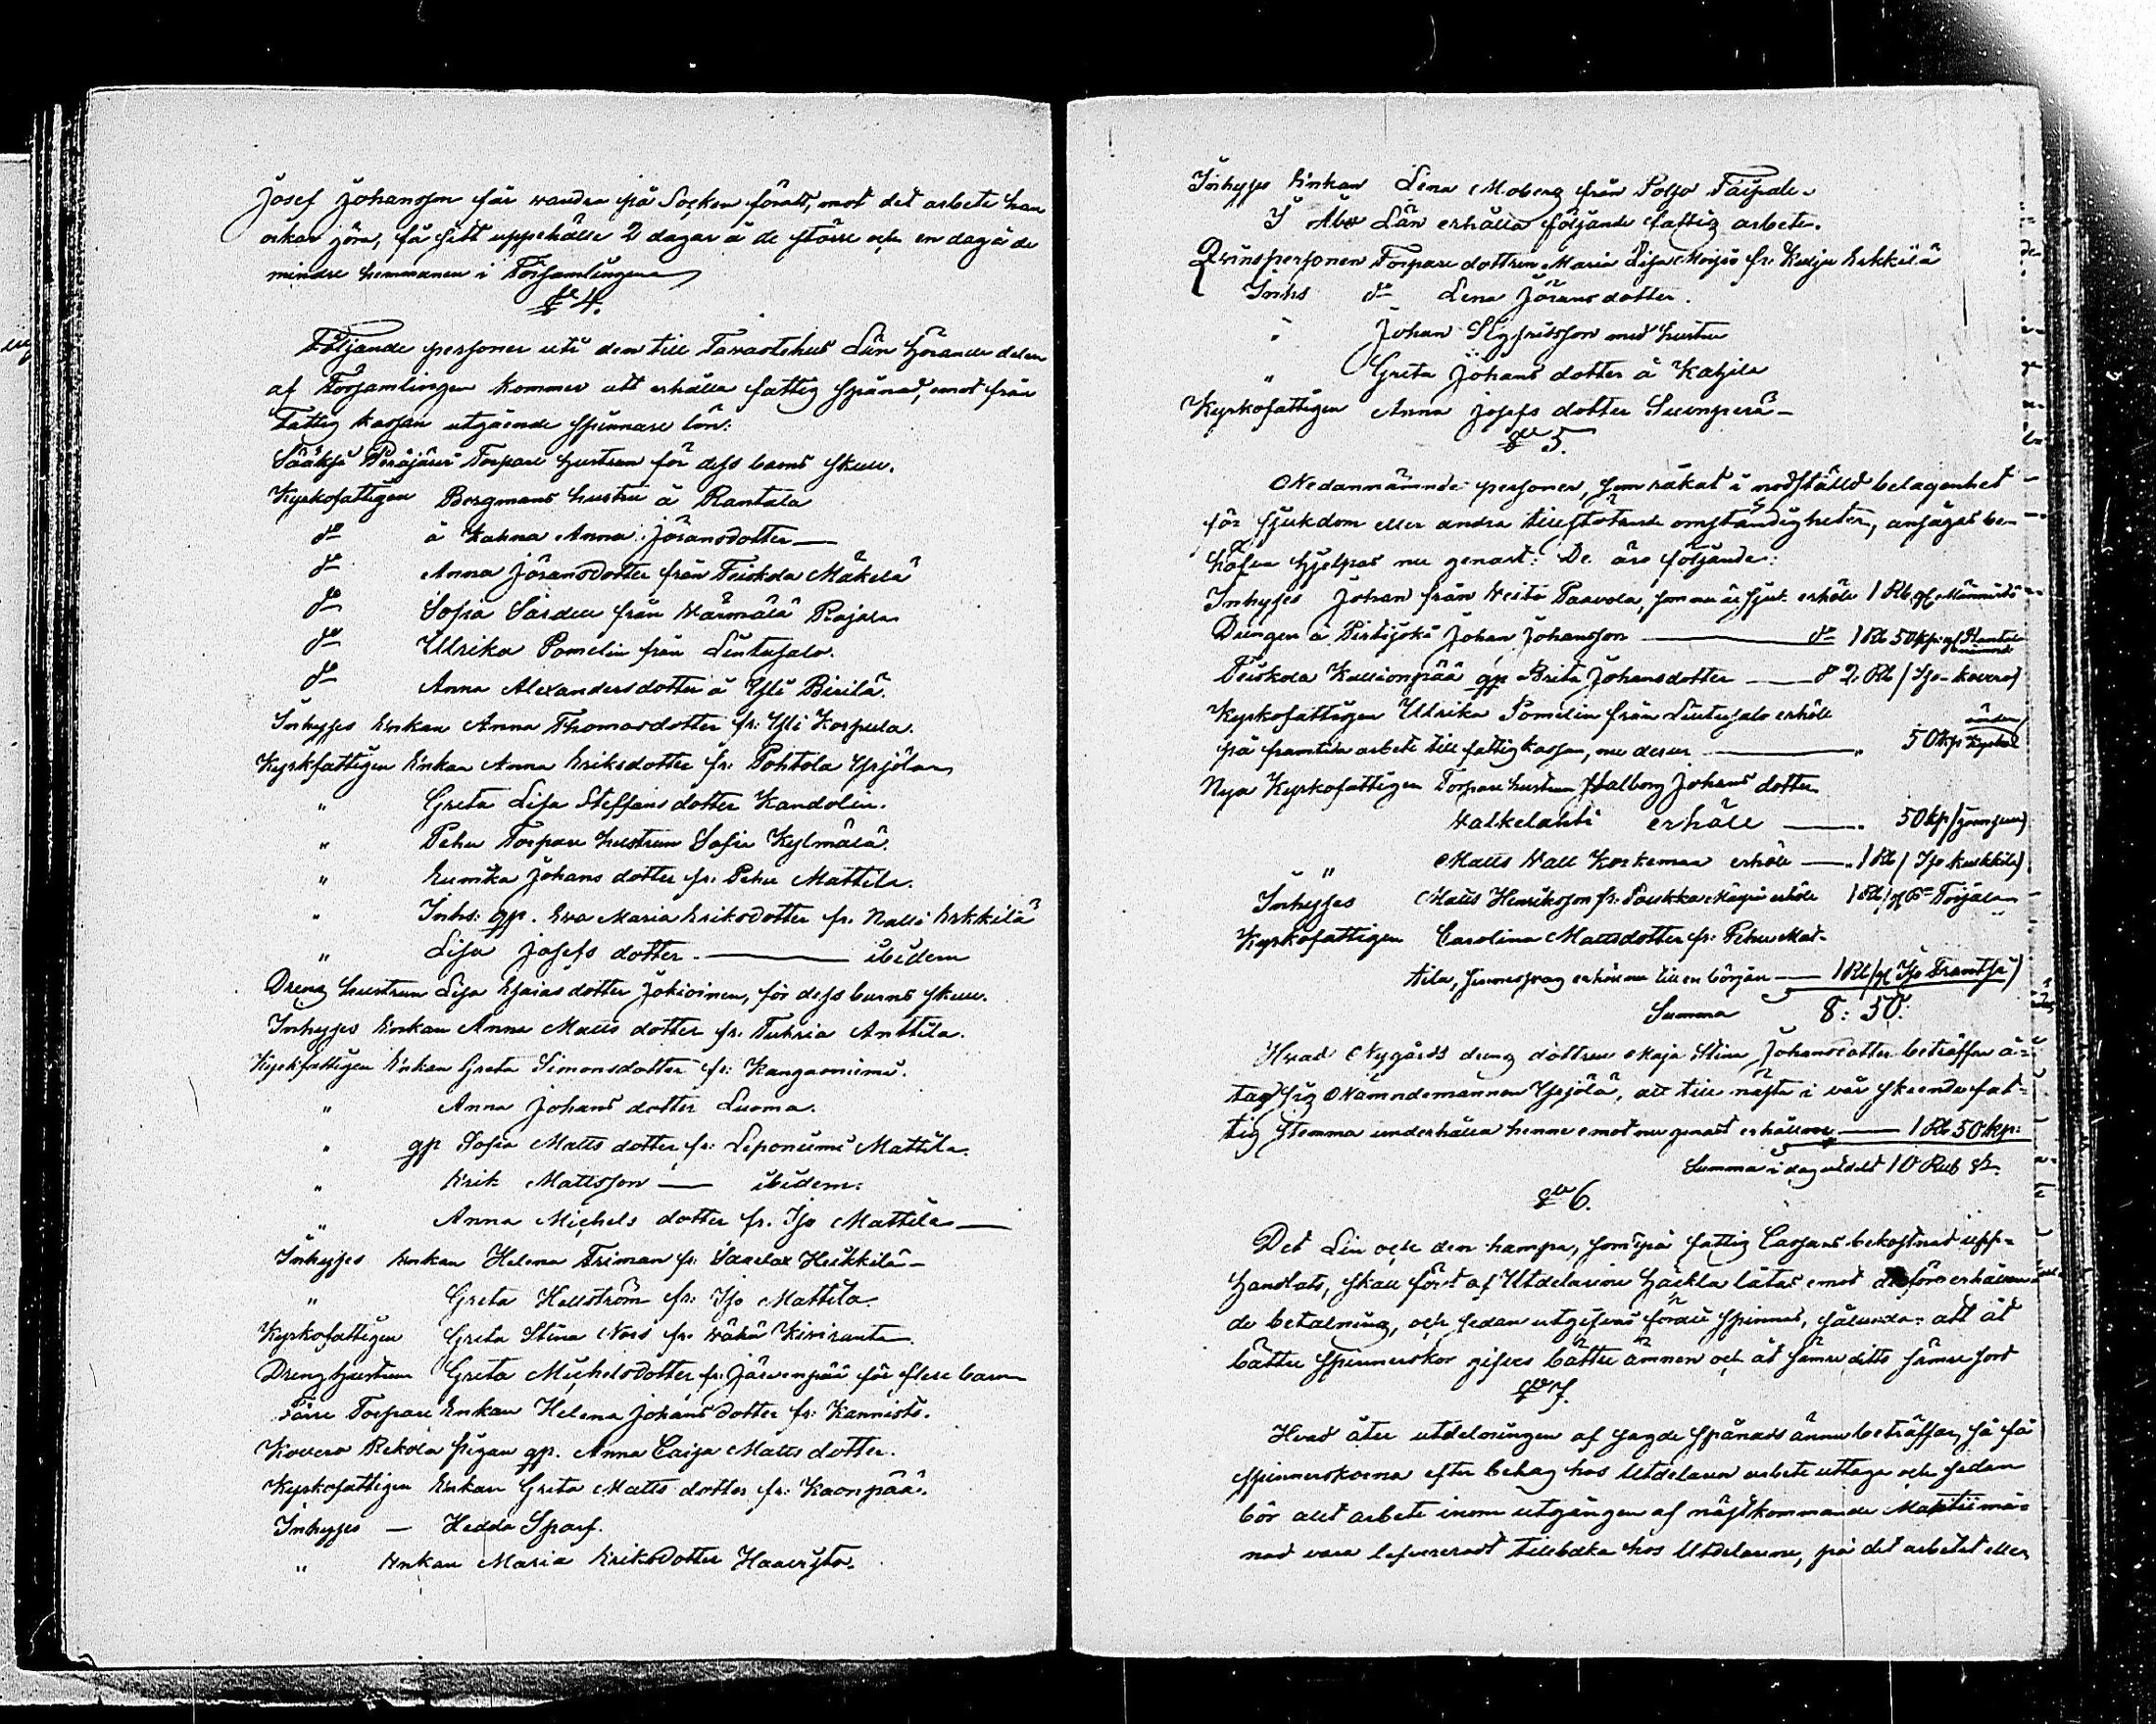 Josef Johansson får vandra på Socken föratt, mot det arbete han
orkar göra, få sitt uppehälle 2 dagar å de större och en dag å de
mindre hemmanen i Församlingen
§ 4.
Följande personer uti den till Tavastehus Län hörande delen
af Församlingen kommer att erhålla fattig spånad, emot från
Fattig kassan utgående spinnare lön:
Sääksi Peräjärvi Torpare hustrun för dess barns skull.
Kyrkofattigen Bergmans hustru å Rantala
do å Kahna Anna Jöransdotter
do Anna Jöransdotter från Teiskola Mäkelä
do Sofia Särden från Wärmälä Rajala
do Ullrika Pomelin från Lintusalo.
do Anna Alexandersdotter å Yli Birilä.
Inhyses Enkan Anna Thomasdotter fr: Yli Korpula.
Kyrkfattigen Enkan Anna Eriksdotter fr: Pohtola Yrjölan
" Greta Lisa Steffansdotter Kandolin.
" Pehu Torpare hustrun Sofia Kylmälä.
" Eunika Johansdotter fr. Pehu Mattila.
" Inhs: gp. Ewa Maria Eriksdotter fr. Nalli Erkkilä
" Lisa Josefs dotter ibidem
Dreng hustrun Lisa Esaias dotter Jokioinen, för dess barns skull.
Inhyses Enkan Anna Matts dotter fr. Tuhria Anttila.
Kyrkfattigen Enkan Greta Simonsdotter fr: Kangasniemi.
" Anna Johans dotter Luoma.
" gp Sofia Matts dotter fr: Leponiemi Mattila.
" Erik Mattsson ibidem.
" Anna Michels dotter fr. Iso Mattila
Inhyses Enkan Helena Friman fr. Heikkilä
" Greta Hellström fr: Iso Mattila.
Kyrkofattigen Greta Stina Nors fr. Wähä Kiviranta
Dreng hustrun Greta Michelsdotter fr. Järvenpää för flere barn
Torpare Enkan Helena Johans dotter fr. Kannisto.
Kovero Rekola pigan gp. Anna Caisa Matts dotter.
Kyrkofattigen Enkan Greta Matts dotter fr: Kaonpää.
Inhyses — Hedda Sparf.
" Enkan Maria Eriksdotter Haavisto.
Inhyses Enkan Lena Moberg från Polso Taipale.
I Åbo Län erhålla följande fattig arbete.
Qvinspersonen Torpare dottren Maria Lisa fr. Erkkilä
Inhs do Lena Jörans dotter.
" Johan Sigfridsson med hustru
" Greta Johans dotter å Katjila
Kyrkofattigen Anna Josefs dotter Suonperä
§ 5.
Nedannämnde personer, som råkat i nödställd belägenhet
för sjukdom eller andra tillstötande omständigheter, ansågos be-
höfva hjelpas nu genast: De äro följande:
Inhyses Johan från Paavola, som nu är sjuk erhöll 1 Rb
Drengen å Pirttijoki Johan Johansson do 1 Rb 50 kp:
Teiskola Kallionpää gp Brita Johansdotter do 2 Rb / Iso-Kovero)
Kyrkofattigen Ullrika Pomelin från Lintusalo erhöll
på framtida arbete till fattigkassan, nu derur " 50 kp
Nya Kyrkofattigen Torpare hustrun Walborg Johans dotter
Walkelahti erhöll 50 kp
" Matts Wall Korkeman erhöll " 1 Rb / Iso Keskkilä)
Inhyses Matts Henriksson fr. erhöll 1 Rb
Kyrkofattigen Carolina Mattsdotter fr. Pehu Mat-
tila, sinnessvag erhåller nu till en början 1 Rb / af Iso Frantsi)
Summa 8: 50.
Hvad Nygårds dreng dottren Maja Stina Johansdotter beträffar å-
tager sig Nämndemannen Yrjölä, att till nästa i vår skeende fat-
tig stemma underhålla henne emot nu genast erhållne 1 Rb 50 kp:
Summa i dag utdelt 10 Rub Sr.
§ 6.
Det Lin och den hampa, som på fattig Cassans bekostnad upp-
handlats, skall först af Utdelarene häckla låtas emot derföre erhållan-
de betalning, och sedan utgifvas föratt spinnas, sålunda att åt
bättre spinnerskor gifves bättre ämnen och åt sämre ditto sämre sort
§ 7.
Hvad åter utdelningen af sagde spånads ämne beträffar, så få
spinnerskorna efter behag hos Utdelaren arbete uttaga och sedan
bör allt arbete inom utgången af nästkommande Martii må-
nad vara lefvereradt tillbaka hos Utdelarene, på det arbetet eller